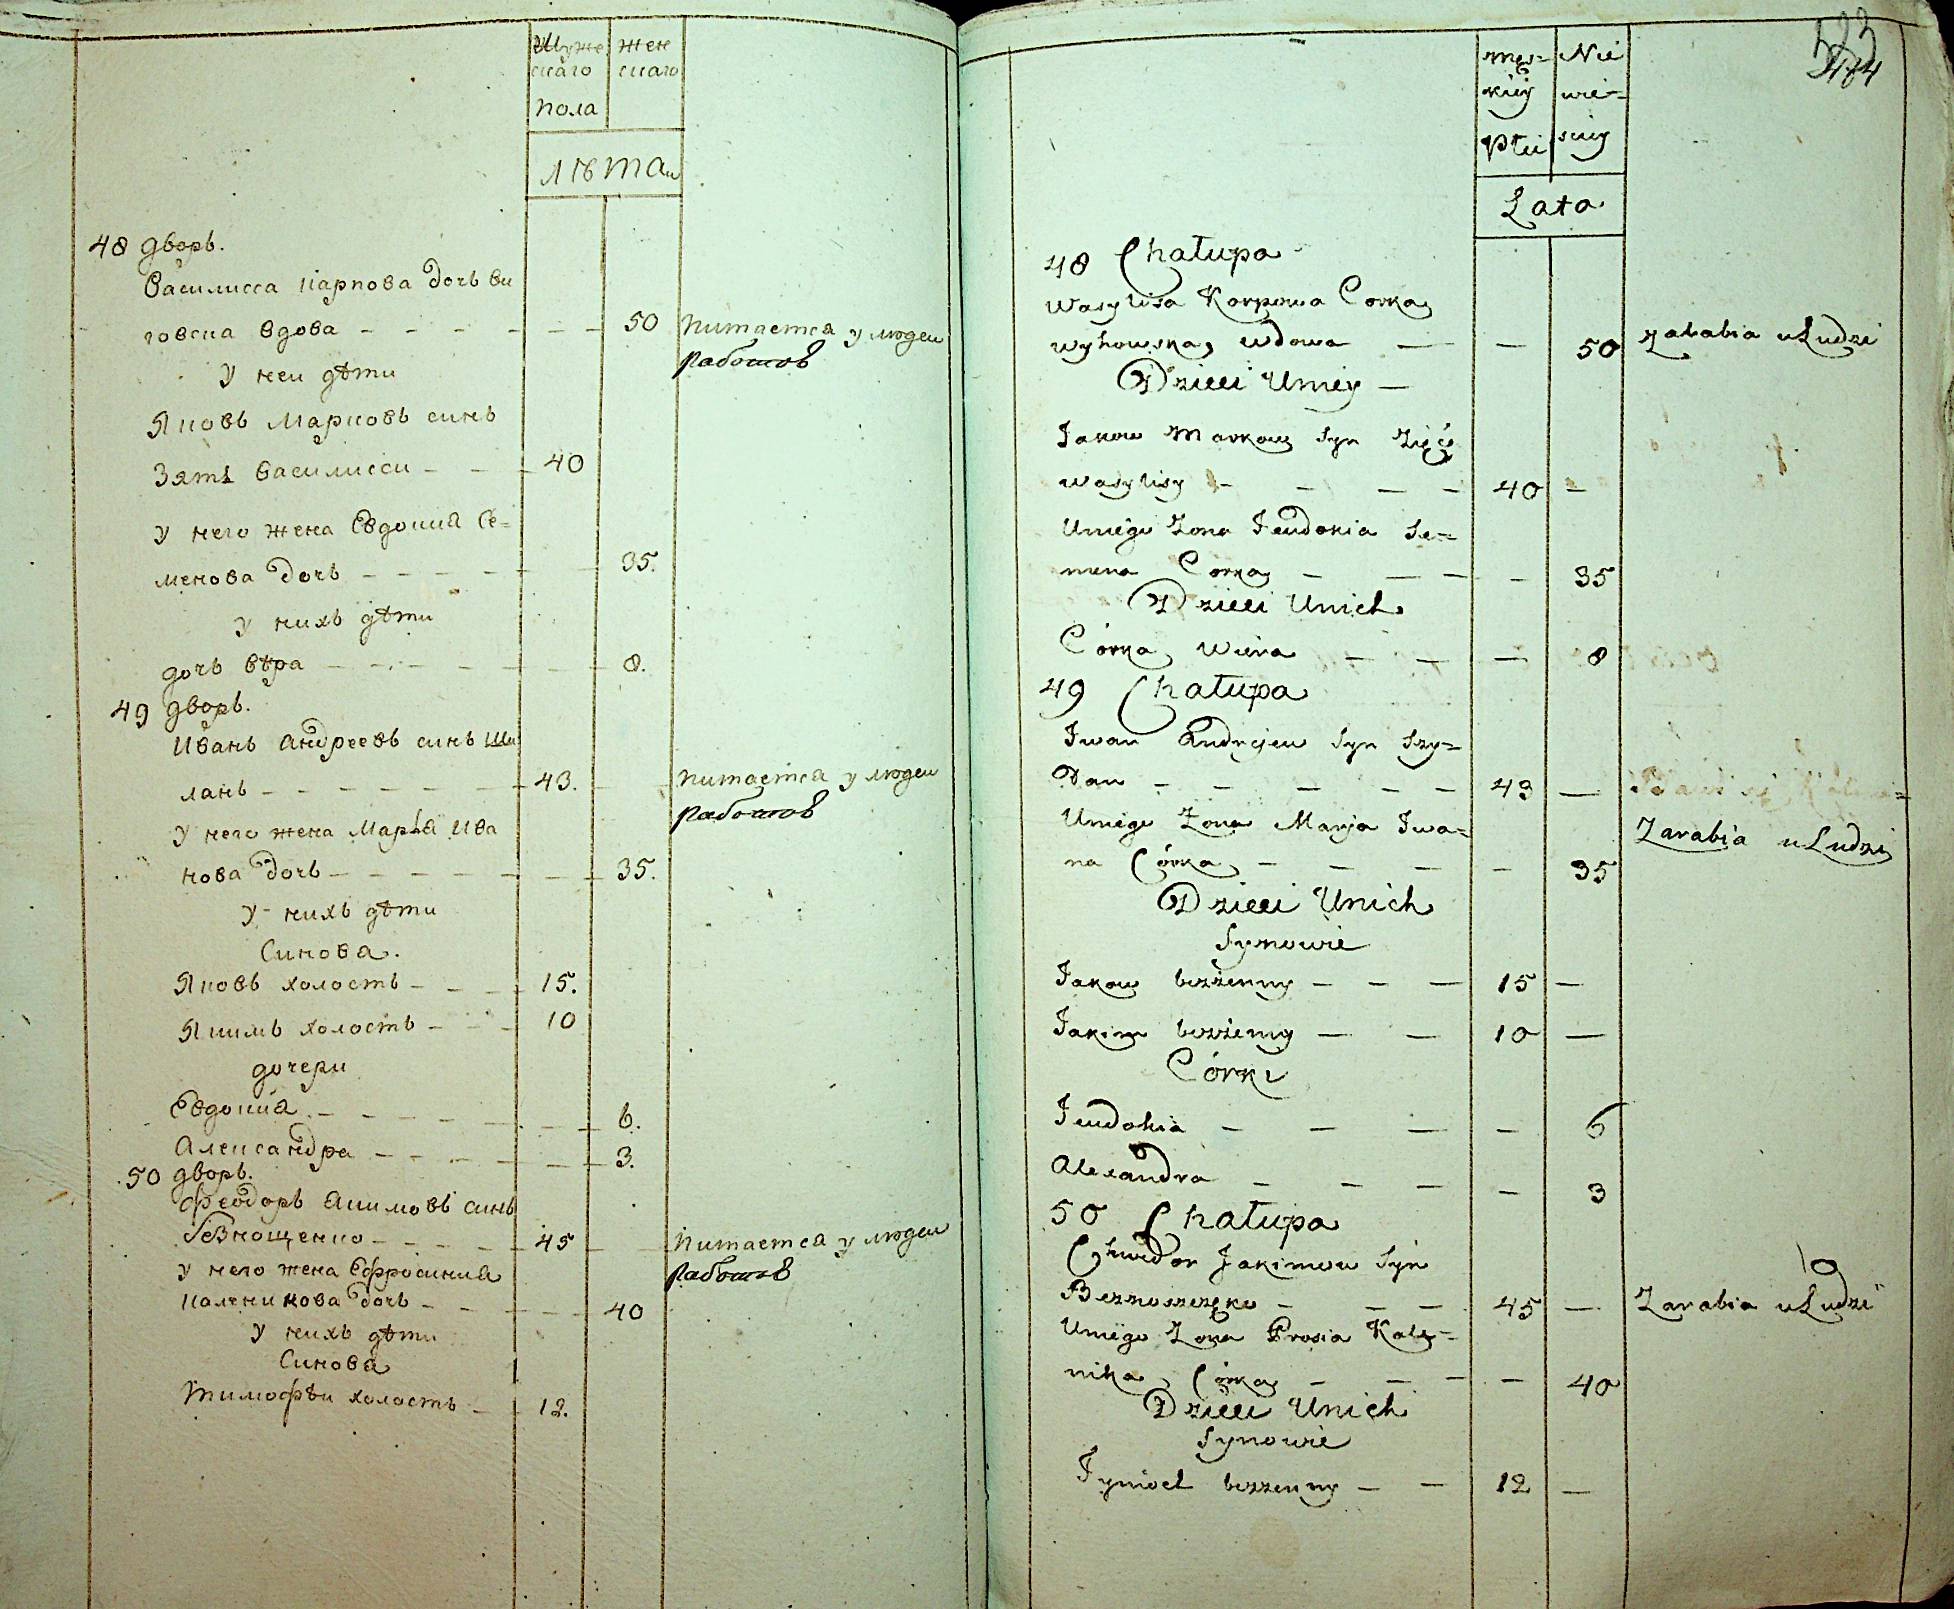 Муже
скаго
пола
жен
скаго
лѣта
48 дворъ.
Василисса Карпова дочь Ви
говска вдова – – – – – – 50 питается у людеи
работов
У неи дѣти
Яковъ Марковъ синъ
Зять Василисси – – – 40
У него жена Евдокиа Се=
менова дочь – – – – – – 35.
у нихъ дѣти
дочь вѣра – – – – – – 8.
49 дворъ.
Иванъ Андреевъ синъ Ши
ланъ – – – – – – 43. питается у людеи
работов
У него жена Марья Ива
нова дочь – – – – – – 35.
У нихъ дѣти
Синова.
Яковъ холостъ – – – 15.
Якимъ холостъ – – – 10
дочери
Евдокиа – – – – – – 6.
Александра – – – – – – 3.
50 дворъ.
Феодоръ Акимовъ синъ
Безнощенко – – – – 45 питается у людеи
работов
У него жена Ефросиниа
Каленикова дочь – – – – 40
У нихъ дѣти
Синова
Тимофѣи холостъ – – 12.
męz=
kiey
Płci
Nie
wie=
sciey
Lata
48 Chałupa
Wasylisa Karpowa Corka
wyhowska wdowa — — 50 zarabia u Ludzi
Dzieci Uniey —
Jakow Markow Syn Zięć
Wasylisy – – – – 40 –
Uniego Zona Jeudokia Se=
mena Corka – – – – 35
Dzieci Unich
Córka Wiera – – – 8
49 Chałupa
Iwan Andrejew Syn Szy=
łan – – – – – 43 —
Uniego Zona Marja Iwa=
na Córka – – – – – 35
Zarabia u Ludzi
Dzieci Unich
Synowie
Jakow bezżenny – – – 15 –
Jakim bezżenny — — 10 —
Córki
Jeudokia – – – – 6
Alexandra – – – – 3
50 Chałupa
Chwedor Jakimow Syn
Beznoszczęko – – – 45 — Zarabia u Ludzi
Uniego Zona Prosia Kale=
nika Córka – – – – 40
Dzieci Unich
Synowie
Tymoch bezżenny – – 12 —